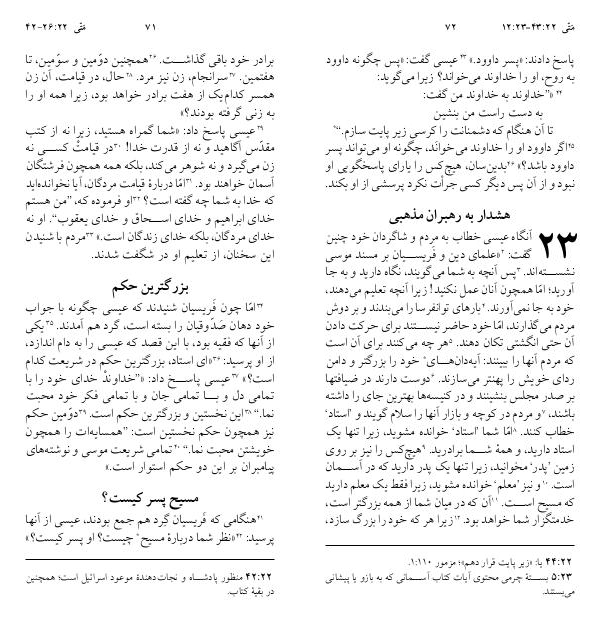 مَتّی ۲۶:۲۲-۴۲
۷۱
برادر خود باقی گذاشت. ۲۶همچنین دوّمین و سوّمین، تا
هفتمین. ۲۷سرانجام، زن نیز مرد. ۲۸حال، در قیامت، آن زن
همسر کدام‌یک از هفت برادر خواهد بود، زیرا همه او را
به زنی گرفته بودند؟»
۲۹عیسی پاسخ داد: «شما گمراه هستید، زیرا نه از کتب
مقدّس آگاهید و نه از قدرت خدا! ۳۰در قیامت کسی نه
زن می‌گیرد و نه شوهر می‌کند، بلکه همه همچون فرشتگان
آسمان خواهند بود. ۳۱امّا دربارهٔ قیامت مردگان، آیا نخوانده‌اید
که خدا به شما چه گفته است؟ ۳۲او فرموده که، ”من هستم
خدای ابراهیم و خدای اسحاق و خدای یعقوب“. او نه
خدای مردگان، بلکه خدای زندگان است.» ۳۳مردم با شنیدن
این سخنان، از تعلیم او در شگفت شدند.
بزرگترین حکم
۳۴امّا چون فَریسیان شنیدند که عیسی چگونه با جواب
خود دهان صَدّوقیان را بسته است، گرد هم آمدند. ۳۵یکی
از آنها که فقیه بود، با این قصد که عیسی را به دام اندازد،
از او پرسید: ۳۶«ای استاد، بزرگترین حکم در شریعت کدام
است؟» ۳۷عیسی پاسخ داد: «”خداوندْ خدای خود را با
تمامی دل و با تمامی جان و با تمامی فکر خود محبت
نما.“ ۳۸این نخستین و بزرگترین حکم است. ۳۹دوّمین حکم
نیز همچون حکم نخستین است: ”همسایه‌ات را همچون
خویشتن محبت نما.“ ۴۰تمامی شریعت موسی و نوشته‌های
پیامبران بر این دو حکم استوار است.»
مسیح پسر کیست؟
۴۱هنگامی که فَریسیان گرد هم جمع بودند، عیسی از آنها
پرسید: ۴۲«نظر شما دربارهٔ مسیح* چیست؟ او پسر کیست؟»
۴۲:۲۲ منظور پادشاه و نجات‌دهندهٔ موعود اسرائیل است؛ همچنین
در بقیهٔ کتاب.
۷۲
مَتّی ۴۳:۲۲-۱۲:۲۳
پاسخ دادند: «پسر داوود.» ۴۳عیسی گفت: «پس چگونه داوود
به روح، او را خداوند می‌خواند؟ زیرا می‌گوید:
۴۴«”خداوند به خداوند من گفت:
به دست راست من بنشین
تا آن هنگام که دشمنانت را کرسی زیر پایت سازم.“*
۴۵اگر داوود او را خداوند می‌خواند، چگونه او می‌تواند پسر
داوود باشد؟» ۴۶بدین‌سان، هیچ‌کس را یارای پاسخگویی او
نبود و از آن پس دیگر کسی جرأت نکرد پرسشی از او بکند.
هشدار به رهبران مذهبی
۲۳ آنگاه عیسی خطاب به مردم و شاگردان خود چنین
گفت: ۲«علمای دین و فَریسیان بر مسند موسی
نشسته‌اند. ۳پس آنچه به شما می‌گویند، نگاه دارید و به جا
آورید؛ امّا همچون آنان عمل نکنید! زیرا آنچه تعلیم می‌دهند،
خود به جا نمی‌آورند. ۴بارهای توانفرسا را می‌بندند و بر دوش
مردم می‌گذارند، امّا خود حاضر نیستند برای حرکت دادن
آن حتی انگشتی تکان دهند. ۵هر چه می‌کنند برای آن است
که مردم آنها را ببینند: آیه‌دان‌های* خود را بزرگتر و دامن
ردای خویش را پهنتر می‌سازند. ۶دوست دارند در ضیافتها
بر صدر مجلس بنشینند و در کنیسه‌ها بهترین جای را داشته
باشند، ۷و مردم در کوچه و بازار آنها را سلام گویند و ’استاد‘
خطاب کنند. ۸امّا شما ’استاد‘ خوانده مشوید، زیرا تنها یک
استاد دارید، و همهٔ شما برادرید. ۹هیچ‌کس را نیز بر روی
زمین ’پدر‘ مخوانید، زیرا تنها یک پدر دارید که در آسمان
است. ۱۰و نیز ’معلم‘ خوانده مشوید، زیرا فقط یک معلم دارید
که مسیح است. ۱۱آن که در میان شما از همه بزرگتر است،
خدمتگزار شما خواهد بود. ۱۲زیرا هر که خود را بزرگ سازد،
۴۴:۲۲ یا: «زیر پایت قرار دهم»؛ مزمور ۱:۱۱۰.
۵:۲۳ بستهٔ چرمی محتوی آیات کتاب آسمانی که به بازو یا پیشانی
می‌بستند.